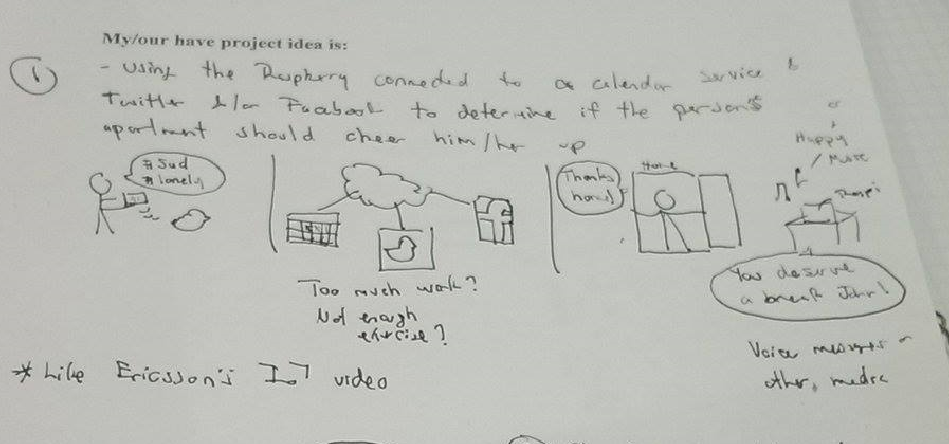 My/our have project idea is:
①
- Using the Raspberry connected to a calendar service &
Twitter &/or Facebook to determine if the person's
apartment should cheer him/her up
#Sad
#lonely
f
Too much work?
Not enough
exercise?
Thanks
home!
Home
or
Happy
Music
You deserve
a break John!
Voice messages or
other media
* Like Ericsson's IoT video